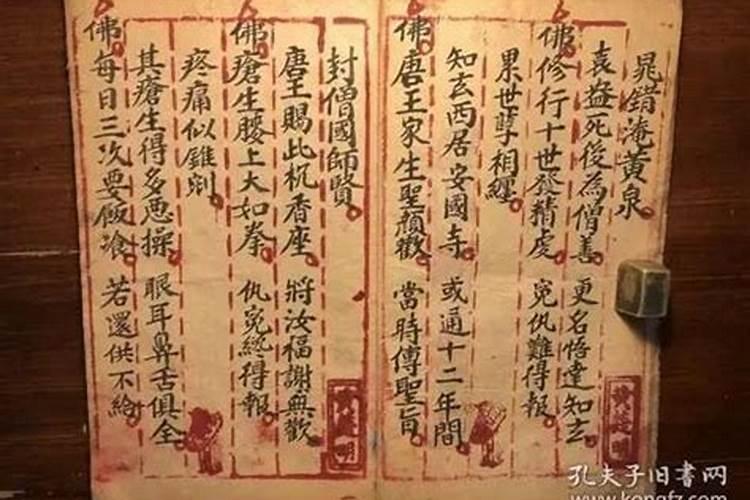 晁錯渰黄泉
袁盎死後為僧善 更名悟達知玄
佛修行十世發精虔 冤仇難得報
累世孽相纏
知玄西居安國寺 或通十二年間
佛唐王家生聖顏歡 當時傳聖旨
封僧國師賢
唐王賜此杋香座 將汝福謝無歡
佛瘡生腰上大如拳 仇冤終得報
疼痛似錐剜
其瘡生得多惡操 眼耳鼻舌俱全
佛每日三次要飯飡 若還供不給
孔夫子旧書网
www.kongfz.com